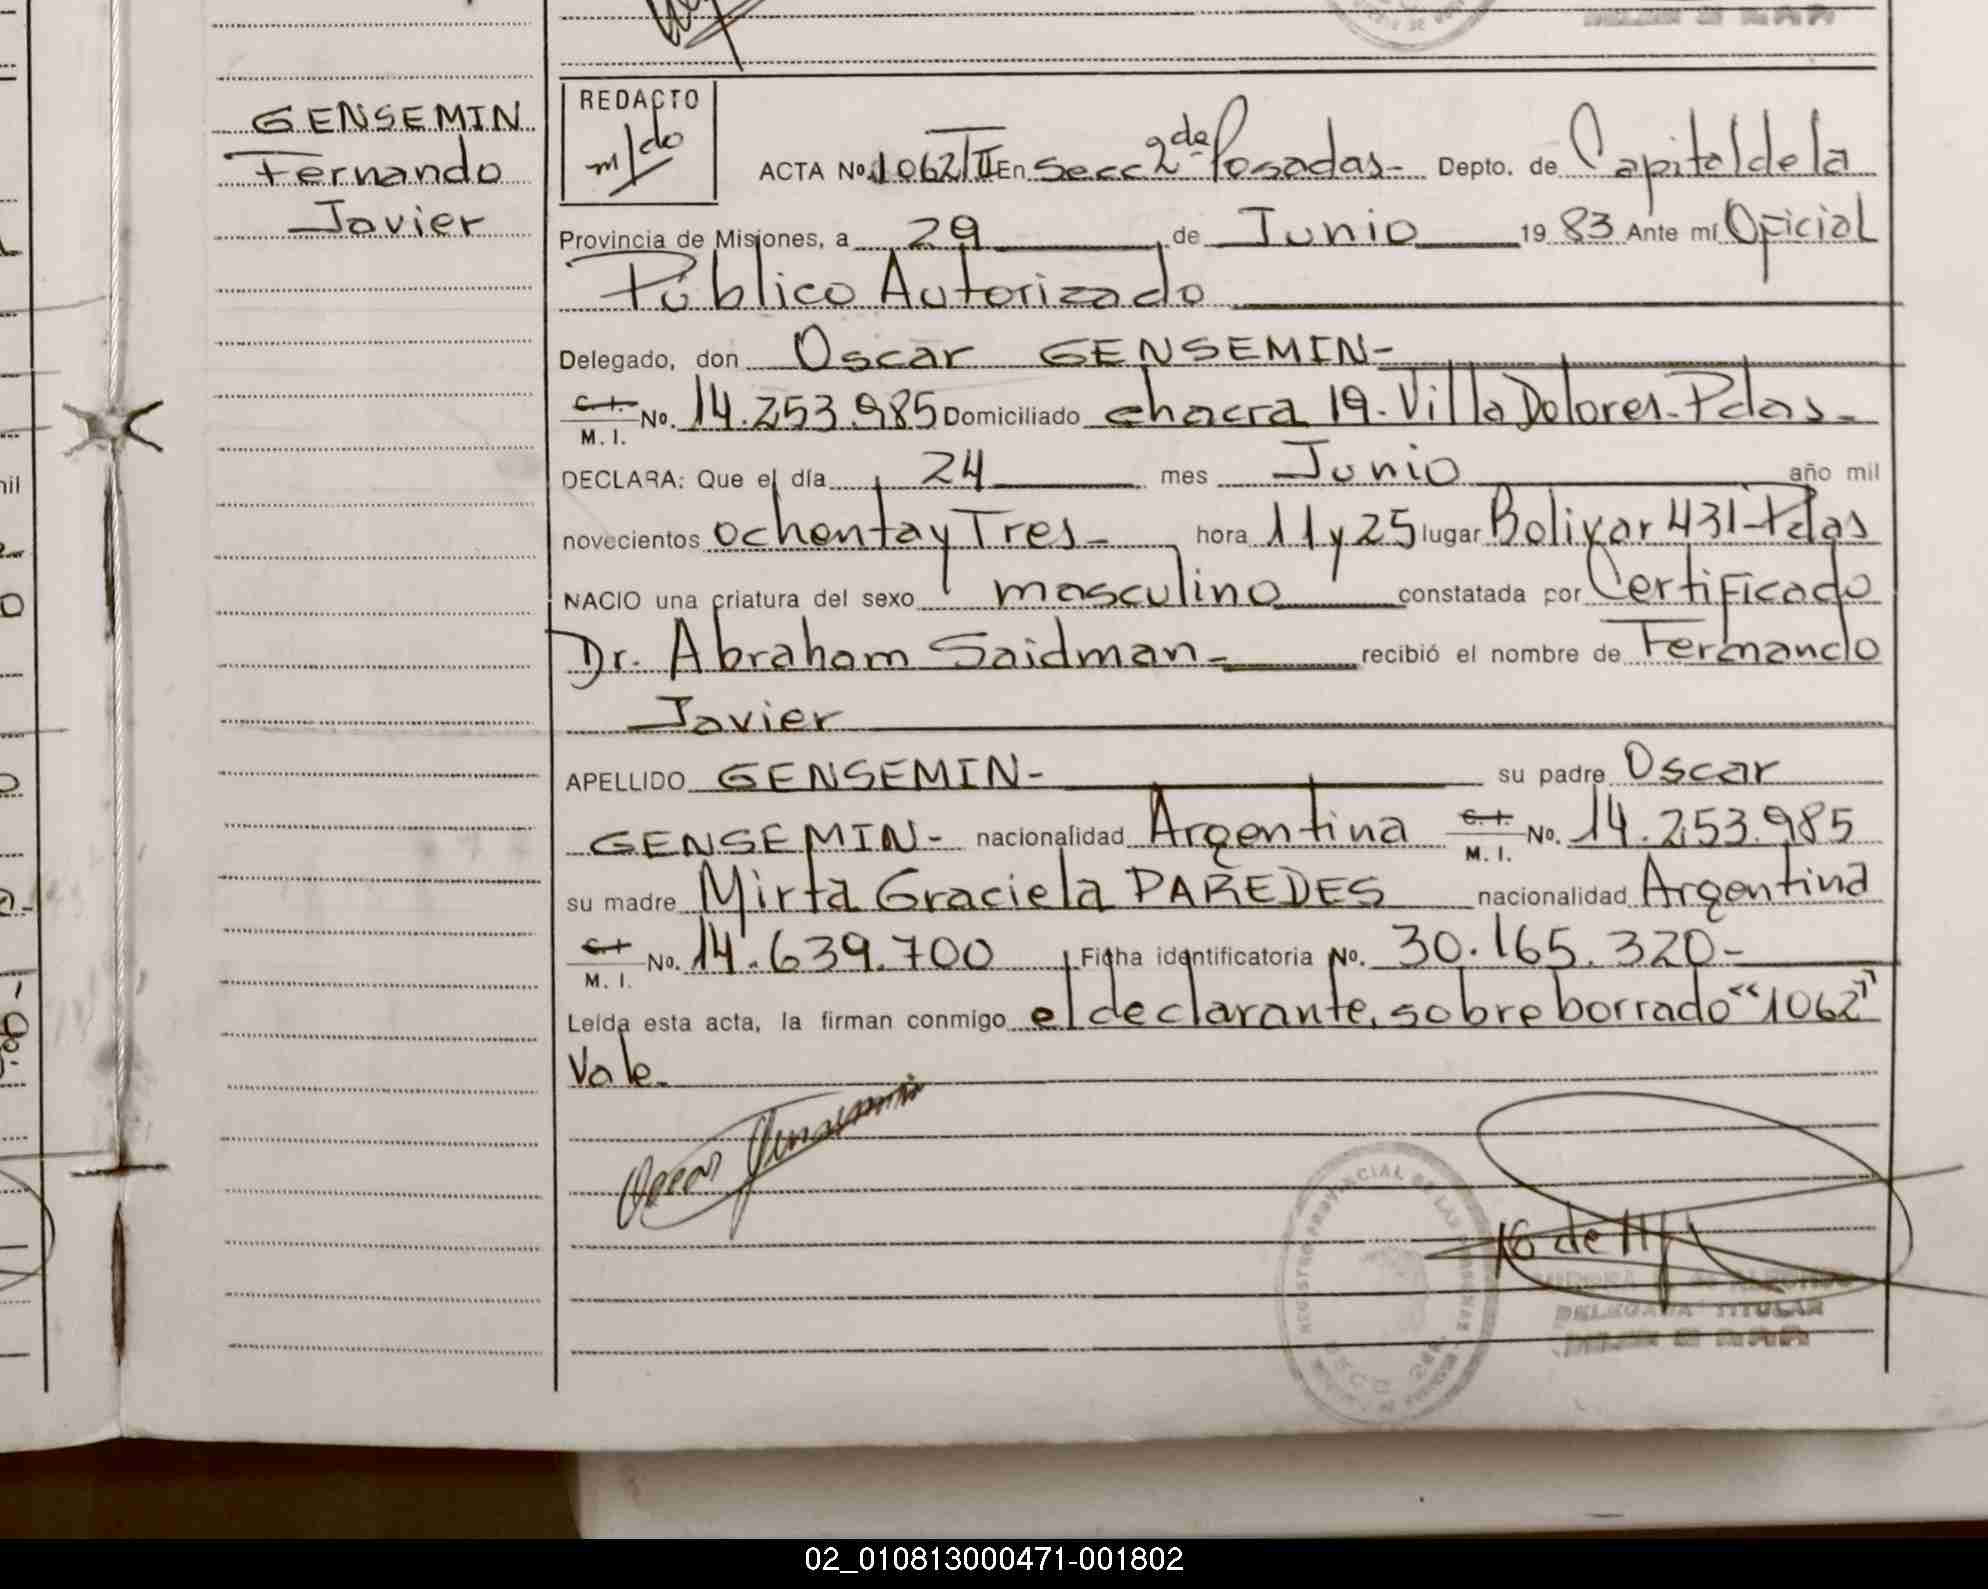 GENSEMIN
Fernando
Javier
REDACTO
m/do
ACTA No. 1062/II En Secc 2da Posadas- Depto. de Capital de la
Provincia de Misiones, a 29 de Junio 1983 Ante mí Oficial
Público Autorizado
Delegado, don Oscar GENSEMIN-
C.I. M. I. No. 14.253.985 Domiciliado chacra 19-Villa Dolores-Pdas-
DECLARA: Que el día 24 mes Junio año mil
novecientos ochenta y Tres- hora 11 y 25 lugar Bolivar 431-Pdas
NACIO una criatura del sexo masculino constatada por Certificado
Dr. Abraham Saidman- recibió el nombre de Fernando
Javier
APELLIDO GENSEMIN- su padre Oscar
GENSEMIN- nacionalidad Argentina C.I. M. I. No. 14.253.985
su madre Mirta Graciela PAREDES nacionalidad Argentina
C.I. M. I. No. 14.639.700 Ficha identificatoria No. 30.165.320-
Leída esta acta, la firman conmigo el declarante, sobre borrado "1062"
Vale.
Oscar Gensemin
REGISTRO PROVINCIAL DE LAS PERSONAS
DELEGADA TITULAR
02_010813000471-001802